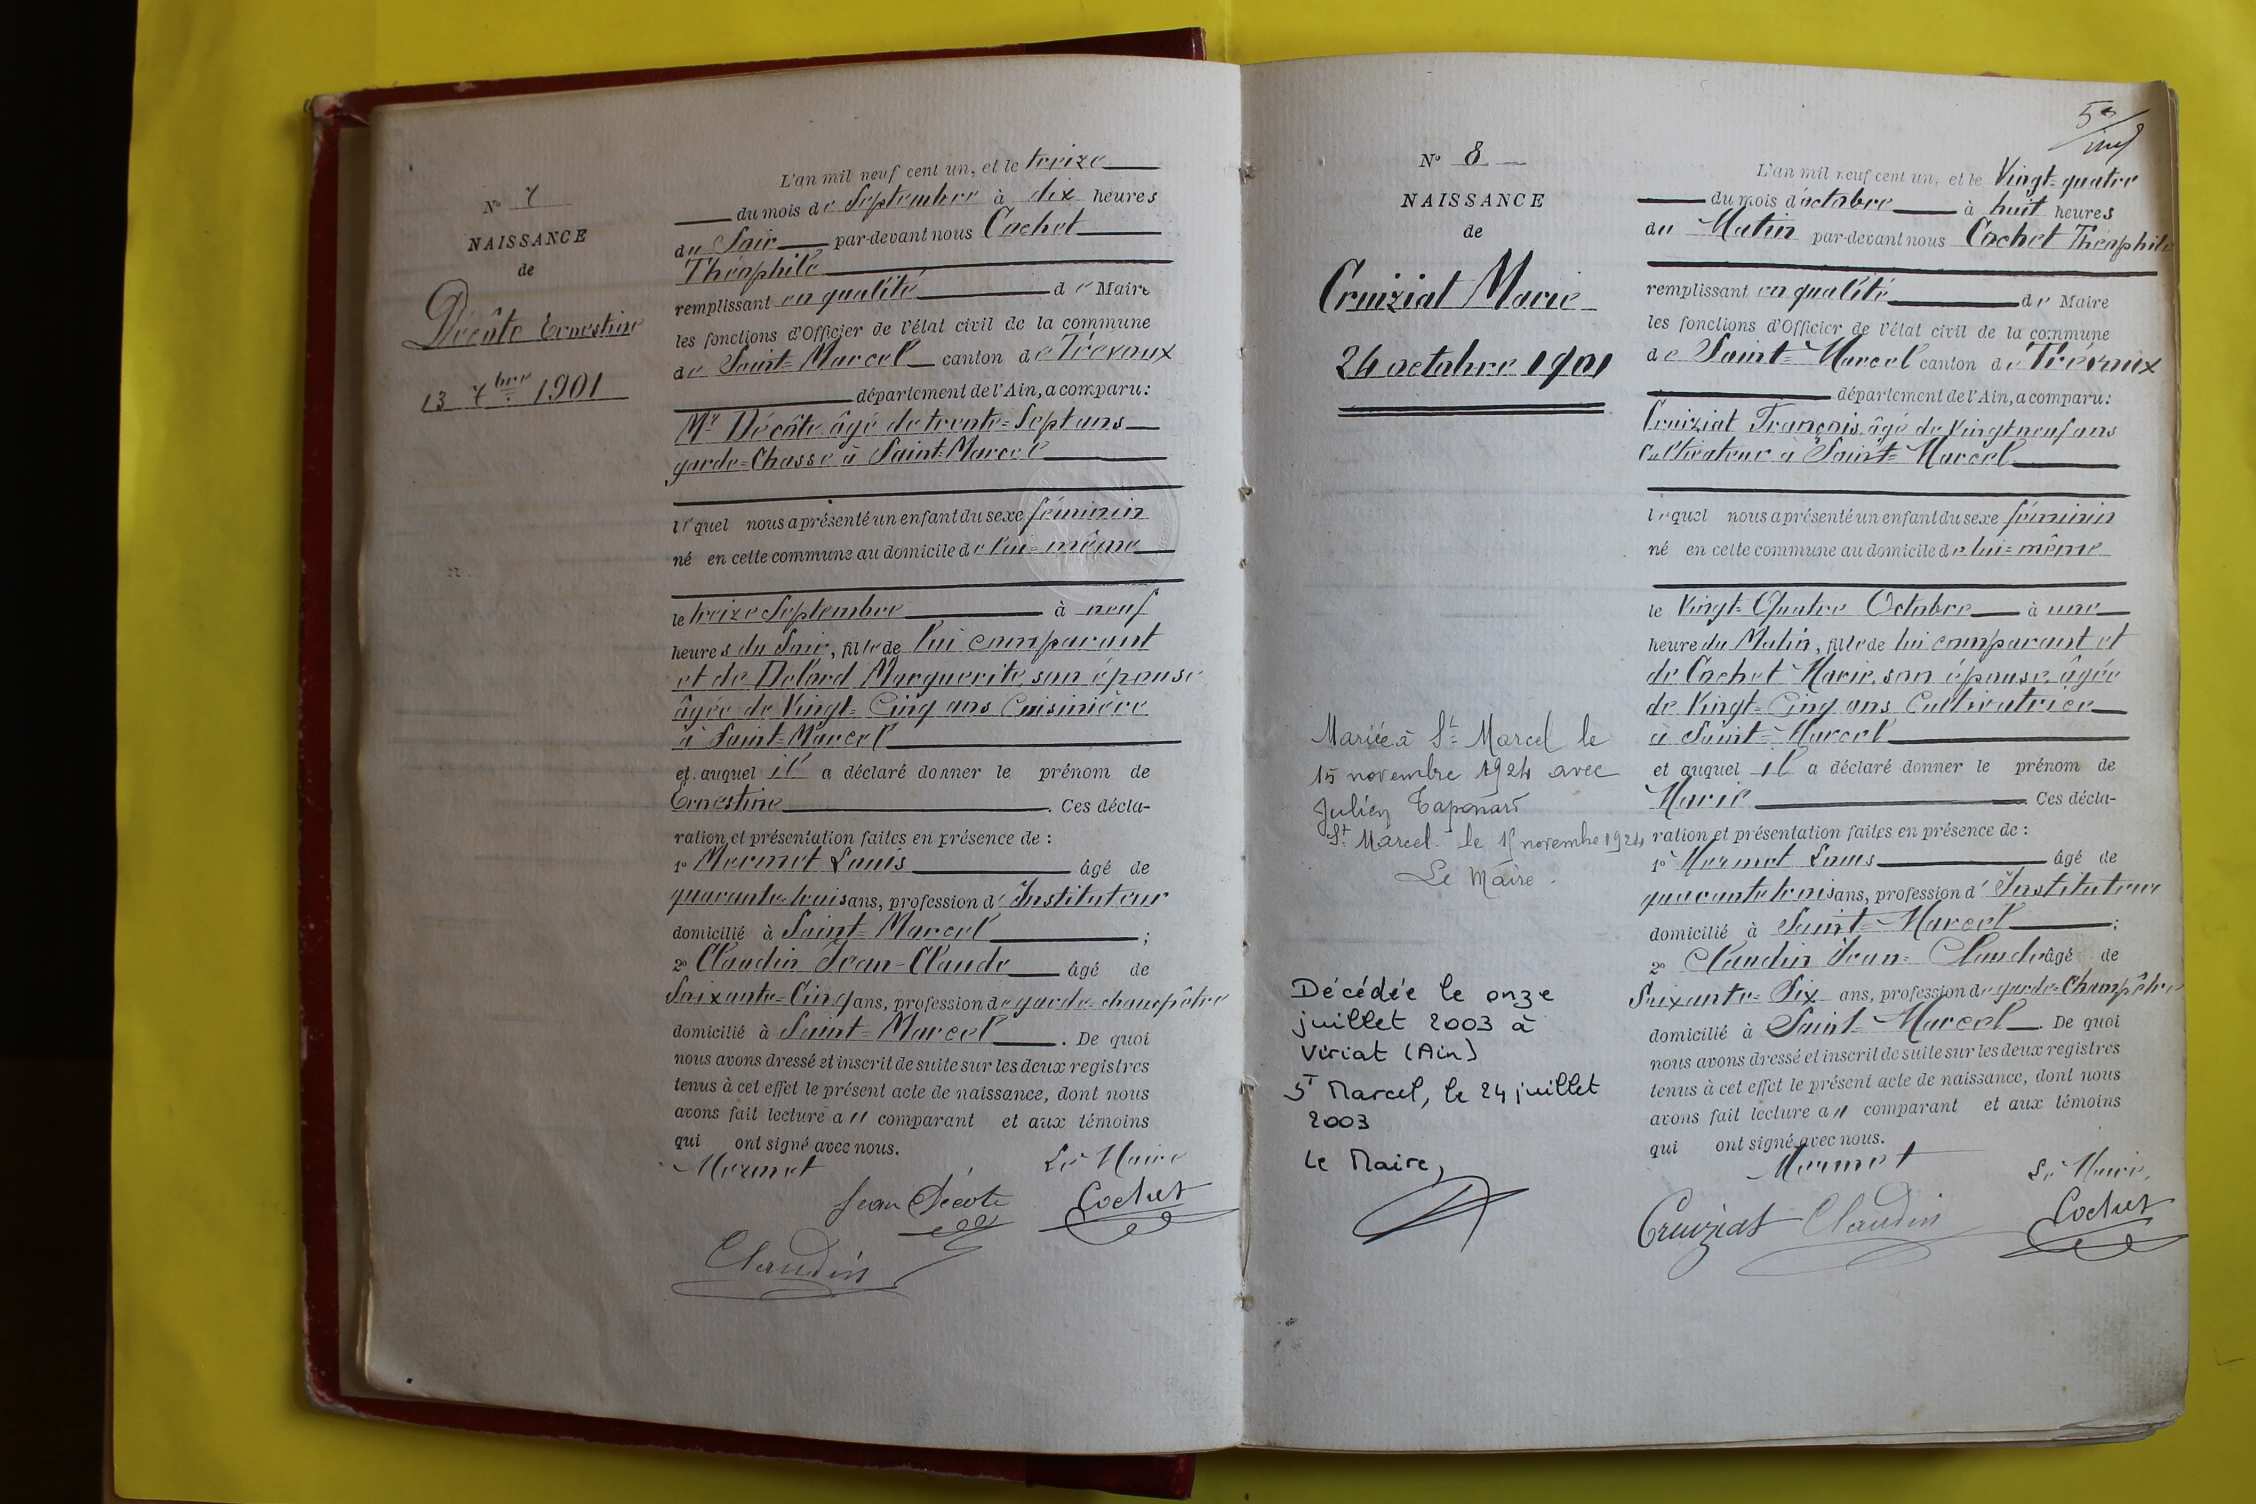 N° 7
NAISSANCE
de
Décôte Ernestine
13 7bre 1901
L'an mil neuf cent un, et le treize
du mois de Septembre à dix heures
du Soir par-devant nous Cochet
Théophile
remplissant en qualité de Maire
les fonctions d'Officier de l'état civil de la commune
de Saint-Marcel canton de Trévoux
département de l'Ain, a comparu:
Mr Décôte âgé de trente-Sept ans
garde-Chasse à Saint-Marcel
lequel nous a présenté un enfant du sexe féminin
né en cette commune au domicile de lui-même
le treize Septembre à neuf
heures du Soir, fille de lui comparant
et de Delord Marguerite, son épouse
âgée de Vingt-Cinq ans Cuisinière
à Saint-Marcel
et auquel il a déclaré donner le prénom de
Ernestine. Ces décla-
ration et présentation faites en présence de :
1° Mermet Louis âgé de
quarante-trois ans, profession d'Instituteur
domicilié à Saint-Marcel ;
2° Claudin Jean-Claude âgé de
Soixante-Cinq ans, profession de garde-champêtre
domicilié à Saint-Marcel. De quoi
nous avons dressé et inscrit de suite sur les deux registres
tenus à cet effet le présent acte de naissance, dont nous
avons fait lecture au comparant et aux témoins
qui ont signé avec nous.
Mermet Le Maire
Jean Décôte Cochet
Claudin
N° 8
NAISSANCE
de
Cruiziat Marie
24 octobre 1901
Mariée à St Marcel le
15 novembre 1924 avec
Julien Taponard
St Marcel le 15 novembre 1924
Le Maire.
Décédée le onze
juillet 2003 à
Viriat (Ain)
ST Marcel, le 24 juillet
2003
Le Maire,
L'an mil neuf cent un, et le Vingt-quatre
du mois d'octobre à huit heures
du Matin par-devant nous Cochet Théophile
remplissant en qualité de Maire
les fonctions d'Officier de l'état civil de la commune
de Saint-Marcel canton de Trévoux
département de l'Ain, a comparu:
Cruiziat François âgé de Vingt neuf ans
Cultivateur à Saint-Marcel
lequel nous a présenté un enfant du sexe féminin
né en cette commune au domicile de lui-même
le Vingt-Quatre Octobre à une
heure du Matin, fille de lui comparant et
de Cochet Marie, son épouse, âgée
de Vingt-Cinq ans Cultivatrice
à Saint-Marcel
et auquel il a déclaré donner le prénom de
Marie. Ces décla-
ration et présentation faites en présence de :
1° Mermet Louis âgé de
quarante trois ans, profession d'Instituteur
domicilié à Saint-Marcel ;
2° Claudin Jean-Claude âgé de
Soixante-Six ans, profession de garde-Champêtre
domicilié à Saint-Marcel. De quoi
nous avons dressé et inscrit de suite sur les deux registres
tenus à cet effet le présent acte de naissance, dont nous
avons fait lecture au comparant et aux témoins
qui ont signé avec nous.
Mermet Le Maire,
Cruiziat Claudin Cochet